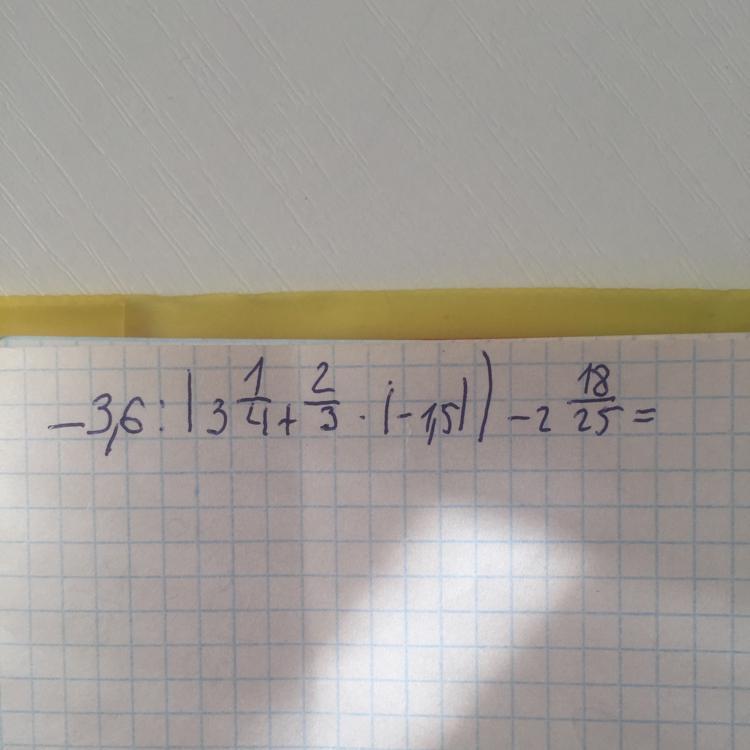 −3,6 : (3 1/4 + 2/3 · (−1,5)) − 2 18/25 =